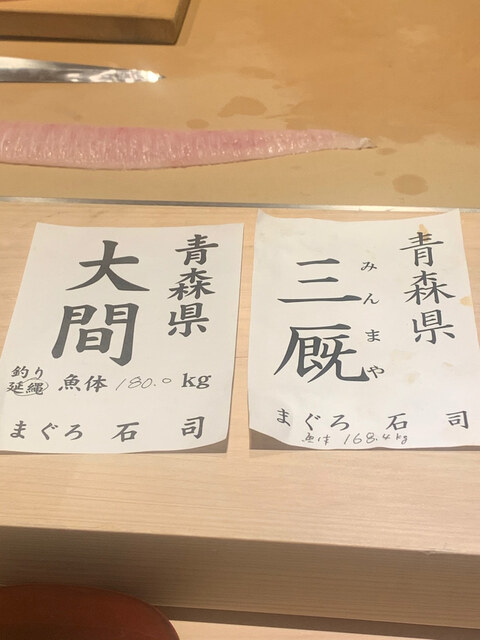 青森県
大間
釣り
延縄
魚体 180.0 kg
まぐろ 石 司
青森県
三厩
みんまや
まぐろ 石 司
魚体 168.4kg